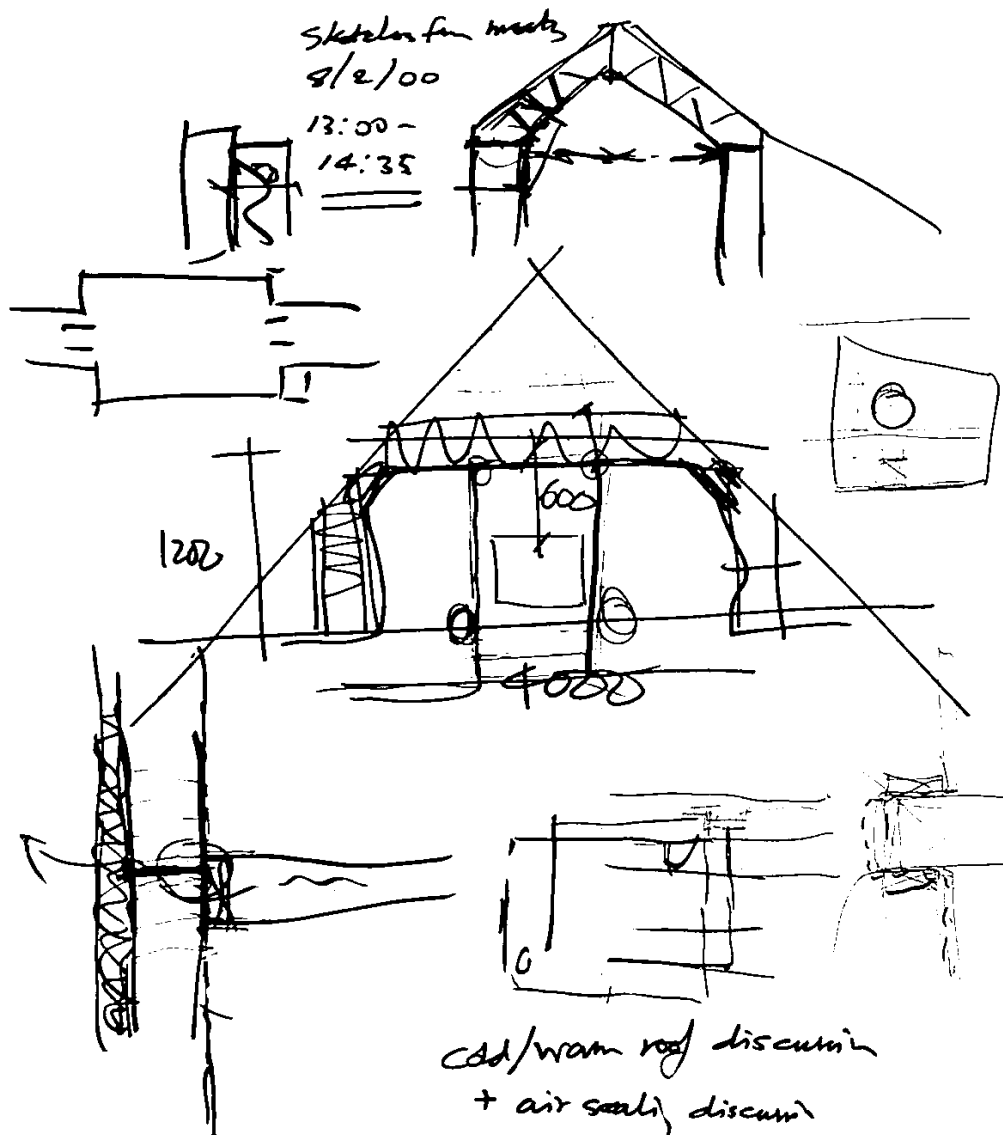 Sketches from meeting
8/2/00
13:00 -
14:35
600
1200
4000
cold/warm roof discussion
+ air sealing discussion